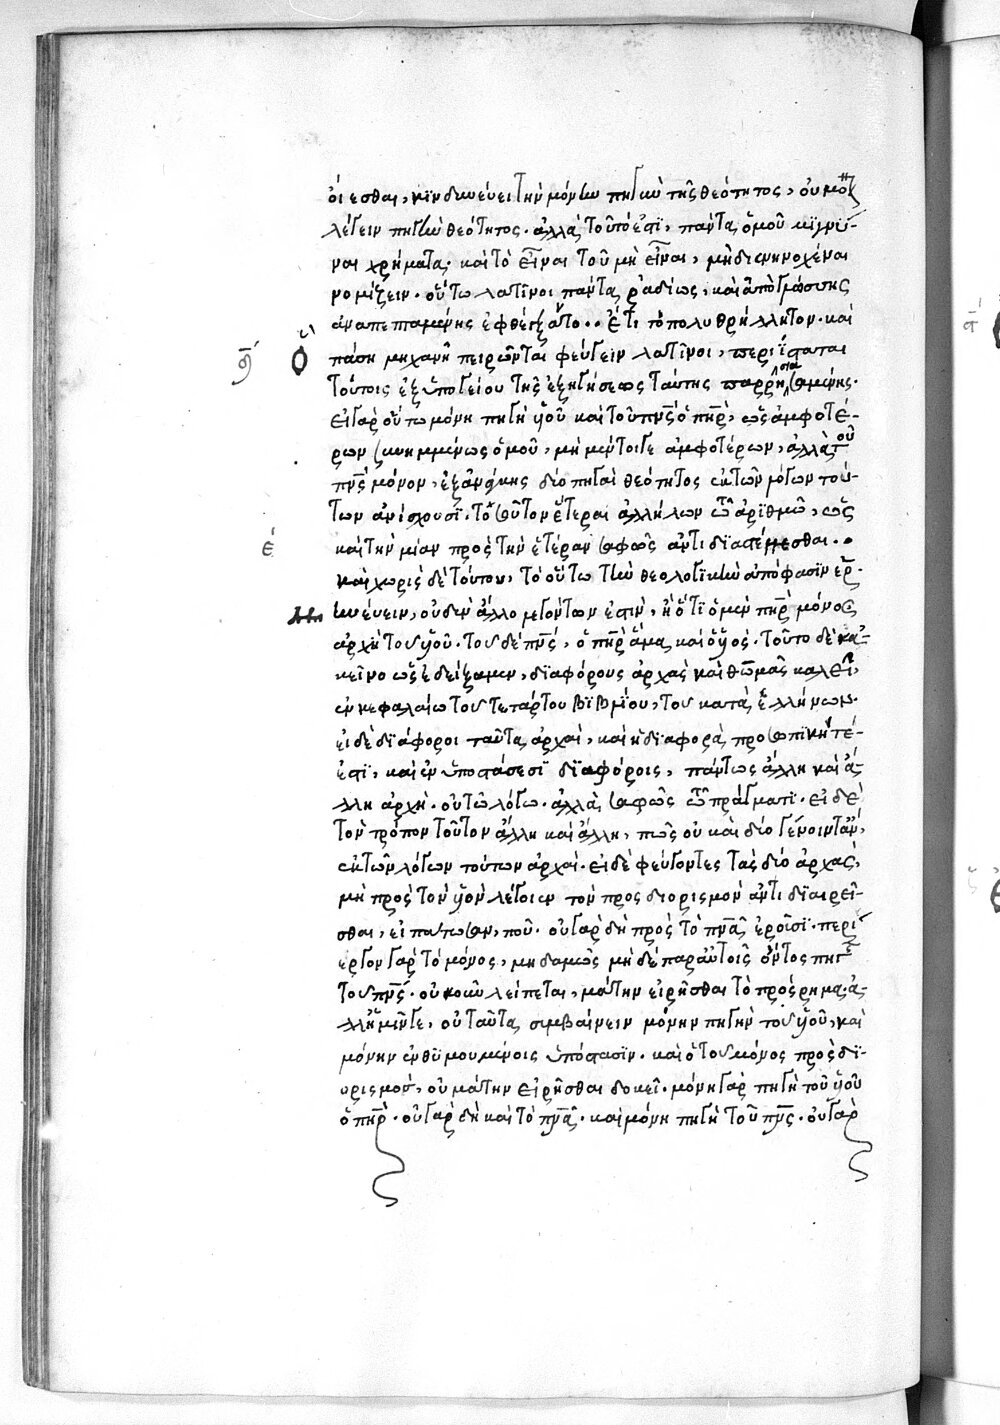 οἴεσθαι, κινδυνεύει τὴν μόνην πηγὴν τῆς θεότητος, οὐ μὸ
λέγειν πηγὴν θεότητος. ἀλλὰ τοῦτό ἐστι, πάντα ὁμοῦ μιγνύ-
ναι χρήματα. καὶ τὸ εἶναι τοῦ μὴ εἶναι, μὴ διενηνοχέναι
νομίζειν. οὕτω λατῖνοι πάντα ῥαδίως, καὶ ἀπὸ γλώσσης
ἀναπεπταμένης ἐφθέγξαντο.. ἔτι τὸ πολυθρήλλητον. καὶ
ὃ
θ´
πάση μηχανῆ πειρῶνται φεύγειν λατῖνοι, περιΐσταται
τούτοις ἐξ ὑπογείου τῆς ἐξηγήσεως ταύτης παρρησιασαμένης.
εἰ γὰρ οὕτω μόνη πηγὴ υἱοῦ καὶ τοῦ πνς ὁ πηρ, ὡς ἀμφοτέ-
ρων συνημμένως ὁμοῦ, μὴ μέντοιγε ἀμφοτέρων, ἀλλὰ τοῦ
πνς μόνον, ἐξανάγκης δύο πηγαὶ θεότητος ἐκ τῶν λόγων τού-
των ἀνίσχουσι. τοσοῦτον ἕτεραι ἀλλήλων τῶ ἀριθμῶ, ὡς
ἑ
καὶ τὴν μίαν πρὸς τὴν ἑτέραν σαφῶς ἀντιδιαστέλλεσθαι..
καὶ χωρὶς δὲ τούτου, τὸ οὕτω τὴν θεολογικὴν ἀπόφασιν ἑρ-
μηνεύειν, οὐδὲν ἄλλο λεγόντων ἐστὶν, ἢ ὅτι ὁ μὲν πηρ μόνος
ἀρχὴ τοῦ υἱοῦ. τοῦ δὲ πνς, ὁ πηρ ἅμα καὶ ὁ υἱός. τοῦτο δὲ κα-
κεῖνο ὡς ἐδείξαμεν, διαφόρους ἀρχὰς καὶ θωμᾶς καλεῖ,
ἐν κεφαλαίω τοῦ τετάρτου βιβλίου, τοῦ κατὰ ἑλλήνων.
εἰ δὲ διάφοροι ταῦτα ἀρχαὶ, καὶ ἡ διαφορὰ προσωπικὴ τέ-
ἐστι, καὶ ἐν ὑποστάσεσι διαφόροις, πάντως ἄλλη καὶ ἄ-
λλη ἀρχὴ. οὐ τῶ λόγω. ἀλλὰ σαφῶς τῶ πράγματι. εἰ δὲ
τὸν τρόπον τοῦτον ἄλλη καὶ ἄλλη, πῶς οὐ καὶ δύο γένοιντ' ἂν,
ἐκ τῶν λόγων τούτων ἀρχαί. εἰ δὲ φεύγοντες τὰς δύο ἀρχὰς,
μὴ πρὸς τὸν υἱὸν λέγοιεν τὸν προσδιορισμὸν ἀντιδιαιρεῖ-
σθαι, εἰπάτωσαν, ποῦ. οὐ γὰρ δὴ πρὸς τὸ πνα ἐροῦσι. περί-
εργον γὰρ τὸ μόνος, μηδαμῶς μηδὲ παρ' αὐτοῖς ὄντος πηγῆς
τοῦ πνς. οὐκοῦν λείπεται, μάτην εἰρῆσθαι τὸ πρόσρημα. ἀ-
λλὴν μὴν γε, οὐ ταῦτα συμβαίνειν μόνην πηγὴν τοῦ υἱοῦ, καὶ
μόνην ἐνθυμουμένοις ὑπόστασιν. καὶ ὁ τοῦ μόνος προσδι-
ορισμὸς, οὐ μάτην εἰρῆσθαι δοκεῖ. μόνη γὰρ πηγὴ τοῦ υἱοῦ
ὁ πηρ. οὐ γὰρ δὴ καὶ τὸ πνα. καὶ μόνη πηγὴ τοῦ πνς. οὐ γὰρ